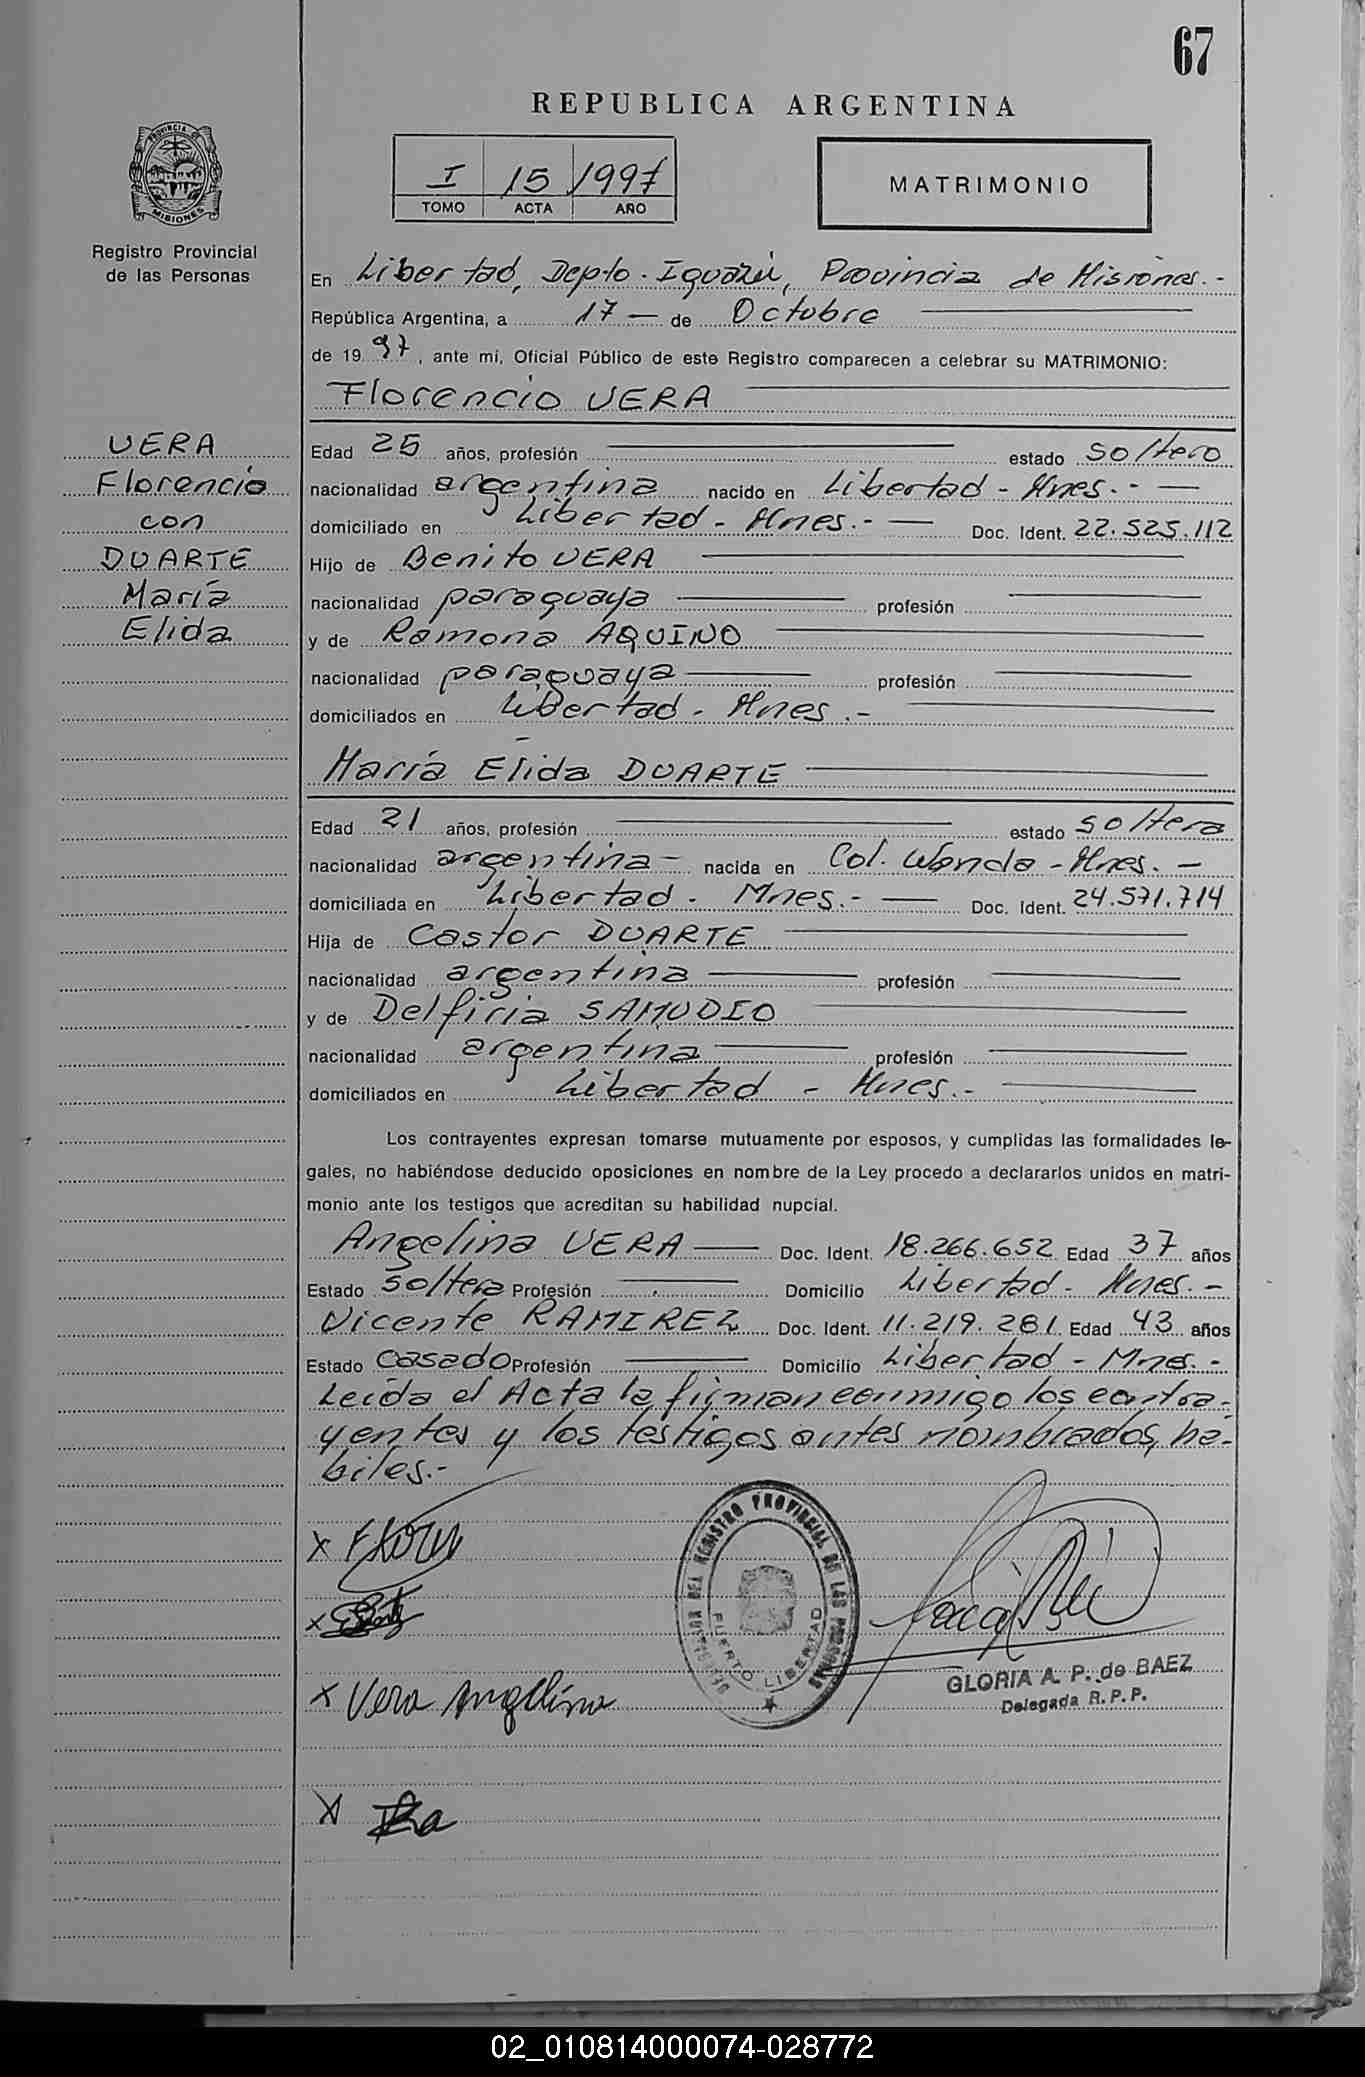 67
REPUBLICA ARGENTINA
I 15 1997
TOMO ACTA AÑO
MATRIMONIO
PROVINCIA DE MISIONES
Registro Provincial
de las Personas
En Libertad, Depto. Iguazú, Provincia de Misiones.-
República Argentina, a 17 — de Octubre
de 1997, ante mí, Oficial Público de este Registro comparecen a celebrar su MATRIMONIO:
Florencio VERA
VERA
Florencio
con
DUARTE
María
Elida
Edad 25 años, profesión estado soltero
nacionalidad argentina nacido en Libertad - Mnes.- —
domiciliado en Libertad - Mnes.- — Doc. Ident. 22.525.112
Hijo de Benito VERA
nacionalidad paraguaya profesión
y de Ramona AQUINO
nacionalidad paraguaya profesión
domiciliados en Libertad - Mnes.-
María Elida DUARTE
Edad 21 años, profesión estado soltera
nacionalidad argentina - nacida en Col. Wanda - Mnes. -
domiciliada en Libertad - Mnes.- — Doc. Ident. 24.571.714
Hija de Castor DUARTE
nacionalidad argentina profesión
y de Delfiria SAMUDIO
nacionalidad argentina profesión
domiciliados en Libertad - Mnes.-
Los contrayentes expresan tomarse mutuamente por esposos, y cumplidas las formalidades le-
gales, no habiéndose deducido oposiciones en nombre de la Ley procedo a declararlos unidos en matri-
monio ante los testigos que acreditan su habilidad nupcial.
Angelina VERA — Doc. Ident. 18.266.652 Edad 37 años
Estado soltera Profesión Domicilio Libertad - Mnes. -
Vicente RAMIREZ Doc. Ident. 11.219.281 Edad 43 años
Estado Casado Profesión Domicilio Libertad - Mnes. -
Leída el Acta la firman conmigo los contra-
yentes y los testigos antes nombrados, há-
biles.-
REGISTRO PROVINCIAL DE LAS PERSONAS
PUERTO LIBERTAD
x
x
GLORIA A. P. de BAEZ
Delegada R. P. P.
x Vera Angelina
x
02_010814000074-028772